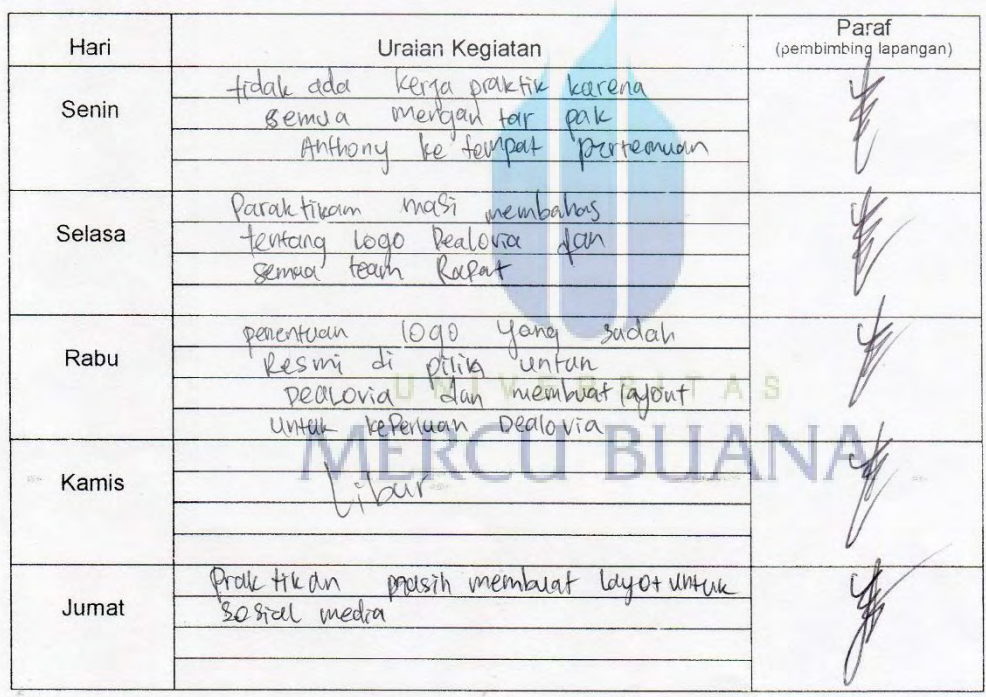 Hari Uraian Kegiatan Paraf
(pembimbing lapangan)
Senin
tidak ada kerja praktik karena
semua mengan tar pak
Anthony ke tempat pertemuan
Selasa
Paraktikam masi membahas
tentang Logo Dealovia dan
semua team Rapat
Rabu
penentuan logo yang sudah
Resmi di pilih untuk
Dealovia dan membuat layout
untuk keperluan Dealovia
UNIVERSITAS
MERCU BUANA
Kamis
Libur
Jumat
praktikan masih membuat layot untuk
sosial media